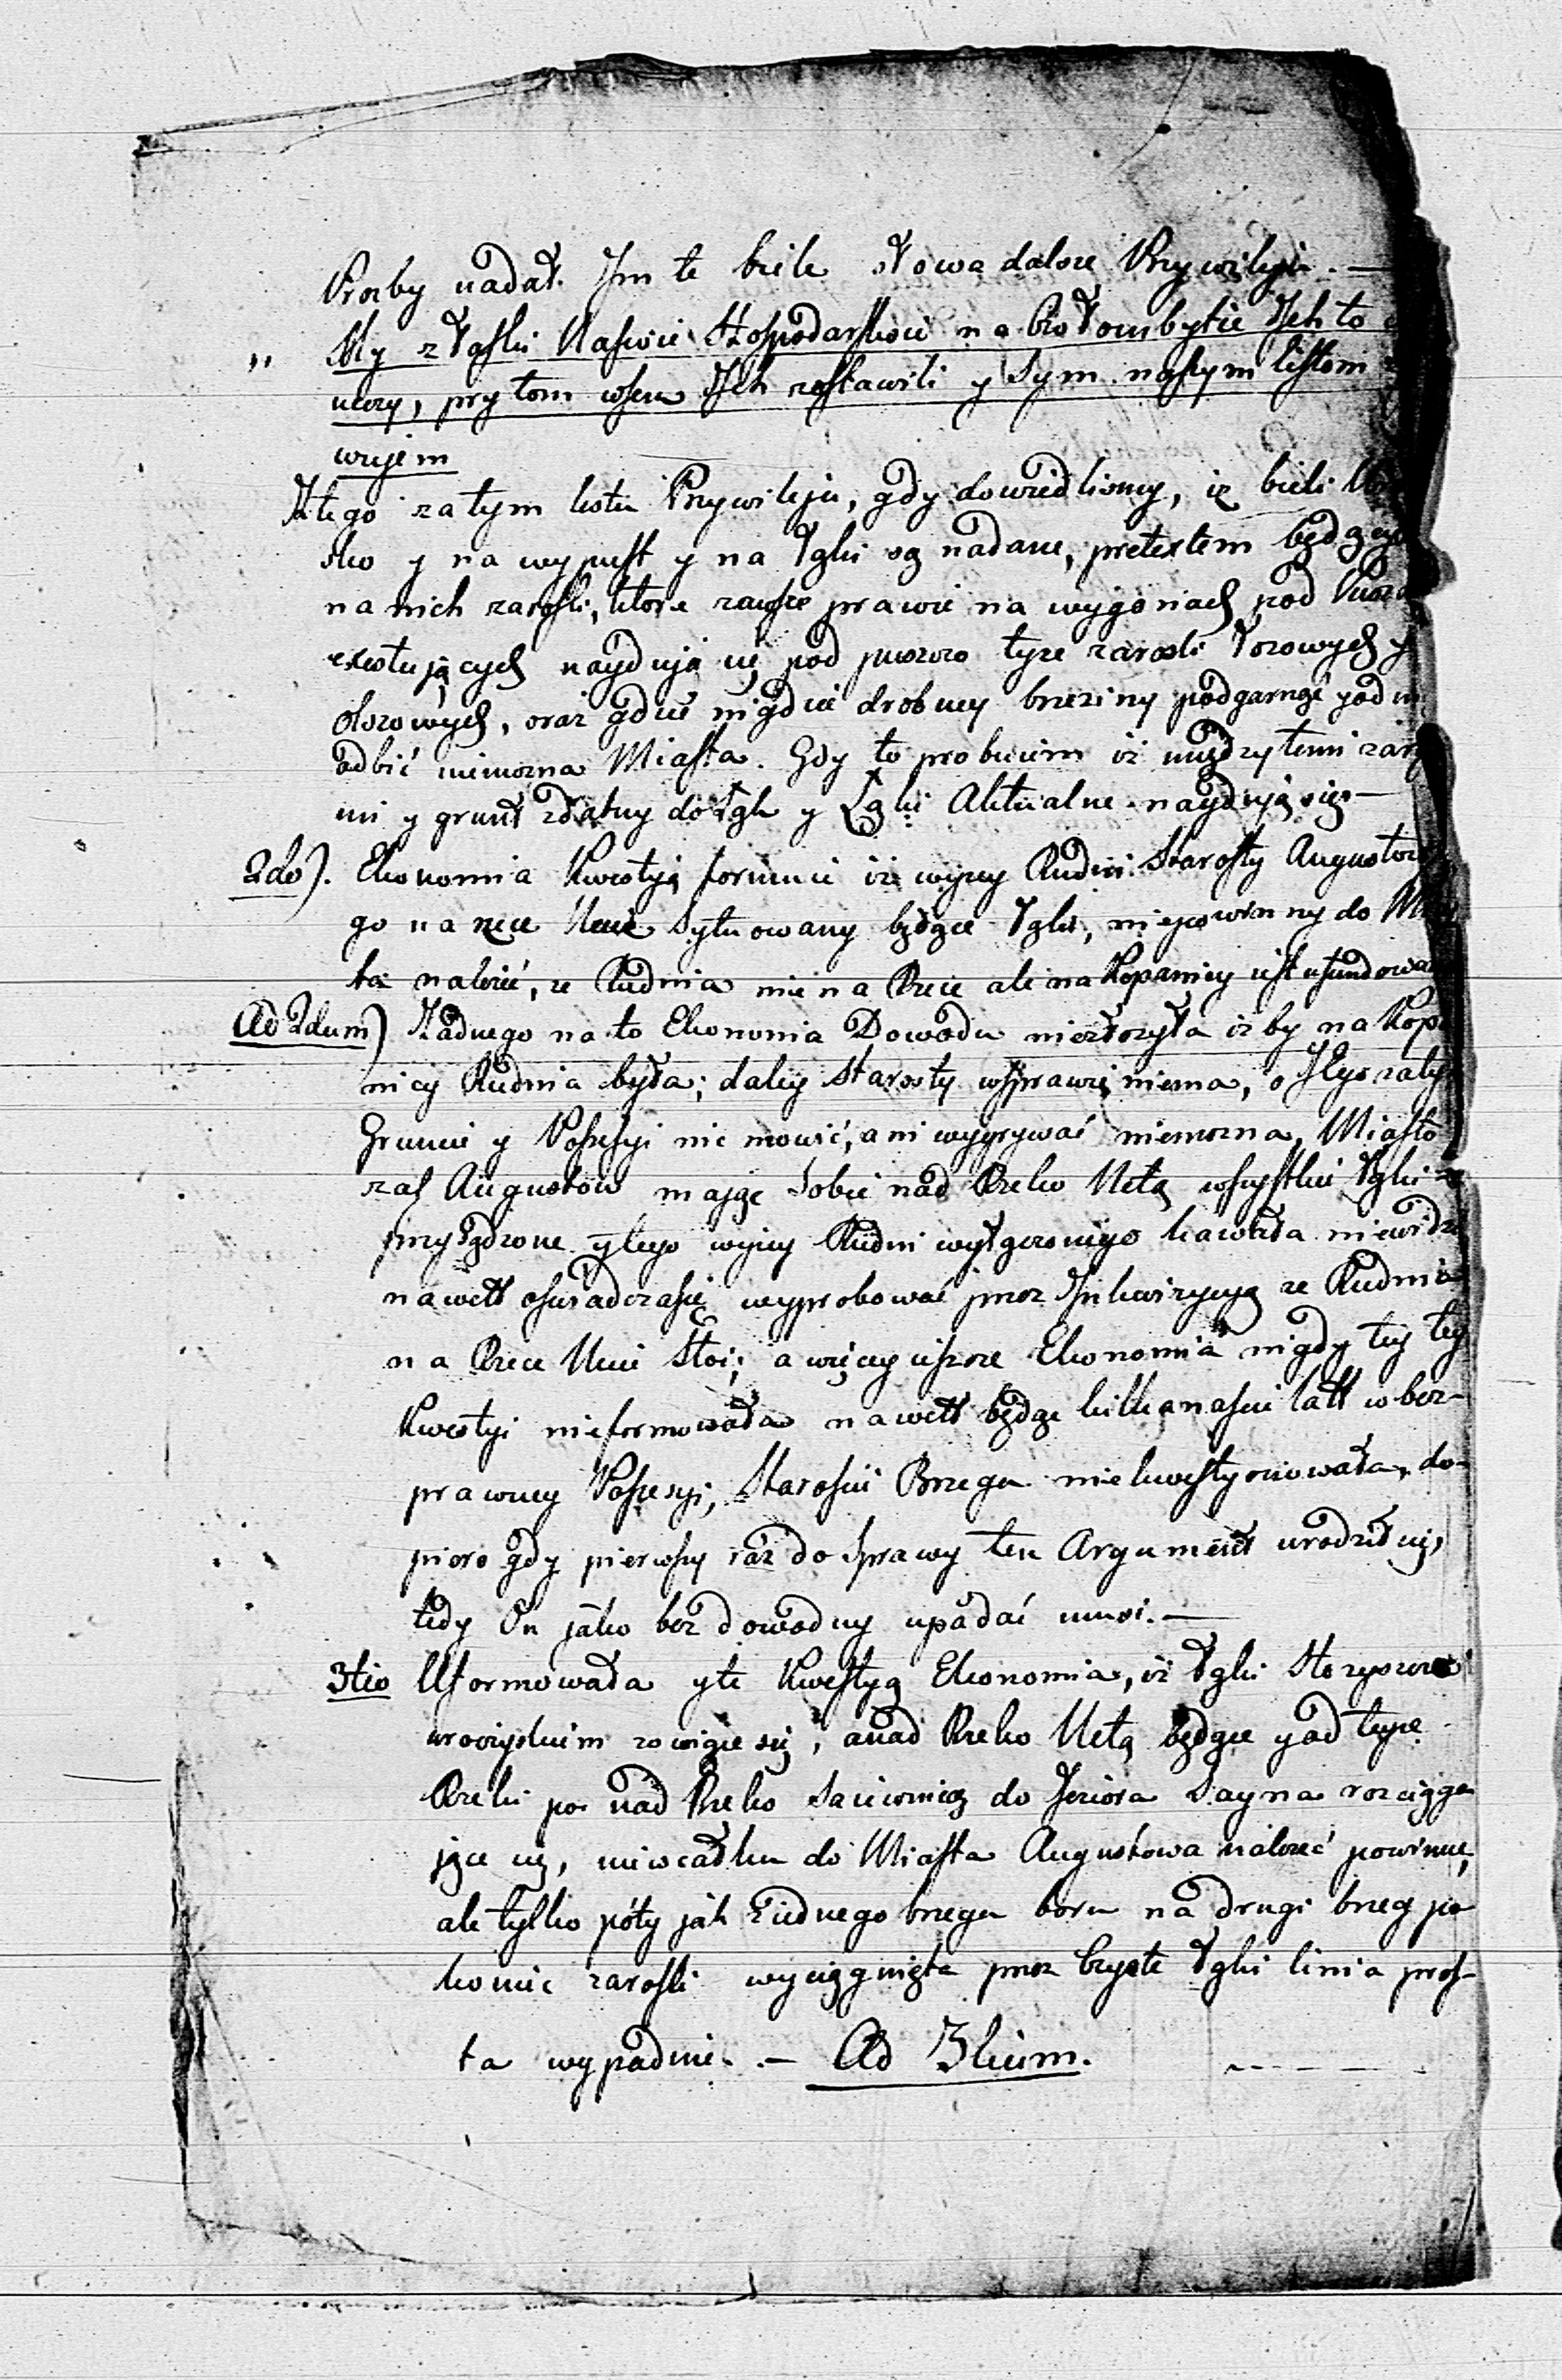 Prozby nadał. Im te biele słowa dalsze Przywileju. —
„ My z łaski Naszoie Hospodarskoie na Czołombytie Jch to
uczy, prytom wsem Jch zostawili y sym naszym listom
wujem
Ztego zatym lustu Przywileju, gdy dowiedlismy, iż bieli
sko y na wypust y na łąki są nadane, pretextem będących
na nich zarośli, ktore zawsze prawie na wygonach pod
exystujących nayduią się pod puszczo tyze zarosli łozowych y
olszowych, oraz gdzie niegdzie drobney brzeziny podgarnąć y od
odbić niemozna Miasta. Gdy to probuiem iż między temi zaroś
mi y grunt zdatny do łąk y Łąki Aktualne nayduią się —
2do). Ekonomia Kwestyą formuie iż wyżey Rudni Starosty Augustows
go na rzece Necie sytuowany będące łąki, niepowinny do Mias
ta należeć, że Rudnia nie na Rzece ale na Kopanicy iest ufundowana
Ad 2dum) Żadnego na to Ekonomia Dowodu niezłożyła iż by na Kopa
nicy Rudnia była; daley Starosty wsprawie niema, o Jego zatym
Gruncie y Possesyi nic mowić, ani wygrywać niemozna, Miasto
zaś Augustow maiąc sobie nad Rzeko Netą wszystkie łąki
przysądzone y tego wyżey Rudni wyłączonego kawałka niewidz
nawett oswiadcza się wyprobować przez Jnkwizycyą że Rudnia
na Rzece Necie stoi; a więcey ieszcze Ekonomia nigdy tey tey
Kwestyi nieformowała nawett będąc kilkanaście latt w bez-
prawney Possesyi, Starościc Brzegu niekwestyonowała, do-
piero gdy pierwszy raz do sprawy ten Argument urodził się,
tedy On jako bez dowodny upadać musi. —
3tio Uformowała y te Kwestyą Ekonomia, iż łąki Storczyzową
uroczyskiem zowiące się, a nad Rzeko Netą będące y od teyze
Rzeki po nad Rzeko Saiewnicą do Jeziora Sayna rozciąga
jące się, niewcałku do Miasta Augustowa należeć powinne,
ale tylko póty jak z iednego brzegu boru na drugi brzeg po
koniec zarosli wyciągnięta przez czyste łąki linia pros-
ta wypadnie. — Ad 3tium.